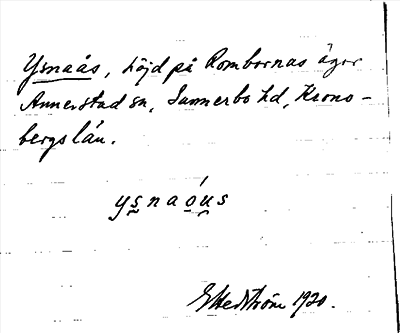 Ysnaås, höjd på Rombornas ägor
Annerstad sn, Sunnerbo hd, Krono-
bergs län.
ysnaóus
G Hedström 1920.